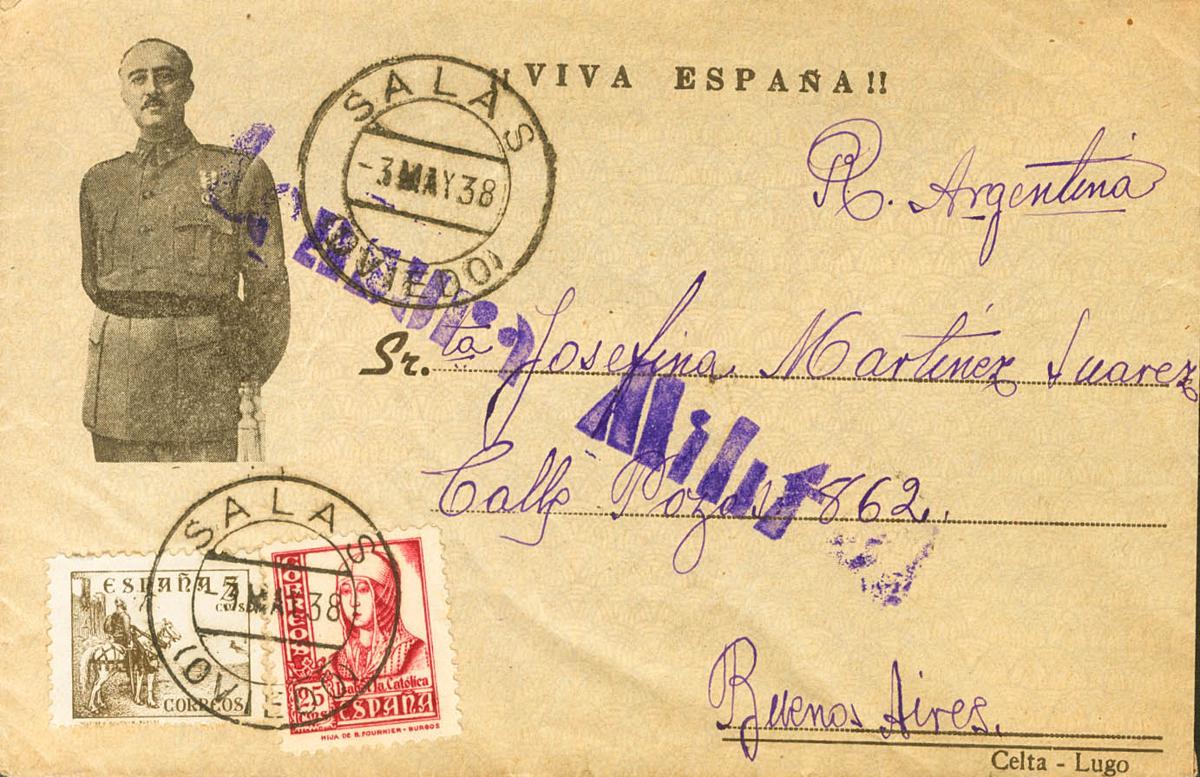 ¡¡VIVA ESPAÑA!!
SALAS
-3 MAY 38
(OVIEDO)
R. Argentina
Sr.ta Josefina Martínez Suarez
Calle Pozos 862.
Buenos Aires.
Celta - Lugo
Militar
SALAS
-3 MAY 38
(OVIEDO)
ESPAÑA 5
CTS
CORREOS
CORREOS
25
CTS
Isabel la Católica
ESPAÑA
HIJA DE B. FOURNIER - BURGOS